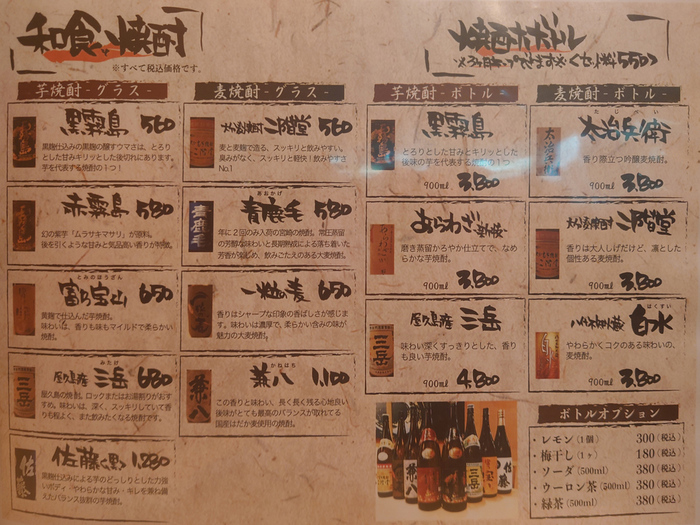 和食に焼酎
※すべて税込価格です。
芋焼酎-グラス-
黒霧島 560
黒麹仕込みの黒麹の醸すウマさは、とろり
とした甘みキリッとした後切れにあります。
芋を代表する焼酎の1つ！
赤霧島 580
幻の紫芋「ムラサキマサリ」が原料。
後を引くような甘みと気品高い香りが特徴。
とみのほうざん
富乃宝山 650
黄麹で仕込んだ芋焼酎。
味わいは、香りも味もマイルドで柔らかい
焼酎。
みたけ
屋久島産 三岳 680
屋久島の焼酎。ロックまたはお湯割りがおす
すめ。味わいは、深く、スッキリしていて香
りも程よく、また飲みたくなる焼酎です。
佐藤<黒> 1,280
黒麹仕込みによる芋のどっしりとした力強
いボディ・やわらかな甘み・キレを兼ね備
えたバランス抜群の芋焼酎。
麦焼酎-グラス-
大分麦焼酎 二階堂 560
麦と麦麹で造る、スッキリと飲みやすい。
臭みがなく、スッキリと軽快！飲みやすさ
No.1
あおかげ
青鹿毛 580
年に2回のみ入荷の宮崎の焼酎。常圧蒸留
の芳醇な味わいと長期熟成による落ち着いた
芳香が楽しめ、飲みごたえのある大麦焼酎。
一粒の麦 650
香りはシャープな印象の香ばしさが感じま
す。味わいは濃厚で、柔らかい含みの味が
魅力の大麦焼酎。
かねはち
兼八 1,100
この香りと味わい、長く長く残る心地良い
後味がとても最高のバランスが取れてる
国産はだか麦使用の焼酎。
芋焼酎-ボトル-
黒霧島
とろりとした甘みとキリッとした
後味の芋を代表する焼酎の1つ！
900ml 3,800
磨き蒸留かろやか仕立てで、なめ
らかな芋焼酎。
900ml 3,800
屋久島産 三岳
味わい深くすっきりとした、香り
も良い芋焼酎。
900ml 4,800
麦焼酎-ボトル-
太治兵衛
香り際立つ吟醸麦焼酎。
900ml 3,800
大分麦焼酎 二階堂
香りは大人しげだけど、凛とした
個性ある麦焼酎。
900ml 3,800
はくすい
八代不知火蔵 白水
やわらかくコクのある味わいの、
麦焼酎。
900ml 3,800
ボトルオプション
・レモン(1個) 300(税込)
・梅干し(1ヶ) 180(税込)
・ソーダ(500ml) 380(税込)
・ウーロン茶(500ml) 380(税込)
・緑茶(500ml) 380(税込)